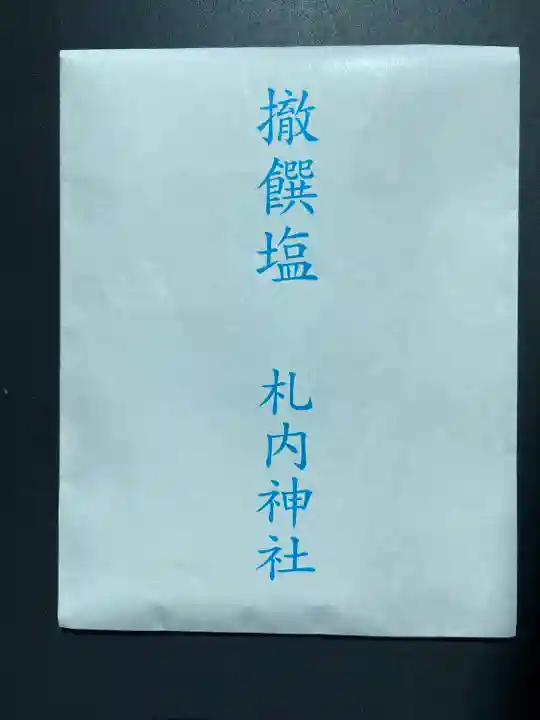 撤饌塩
札内神社